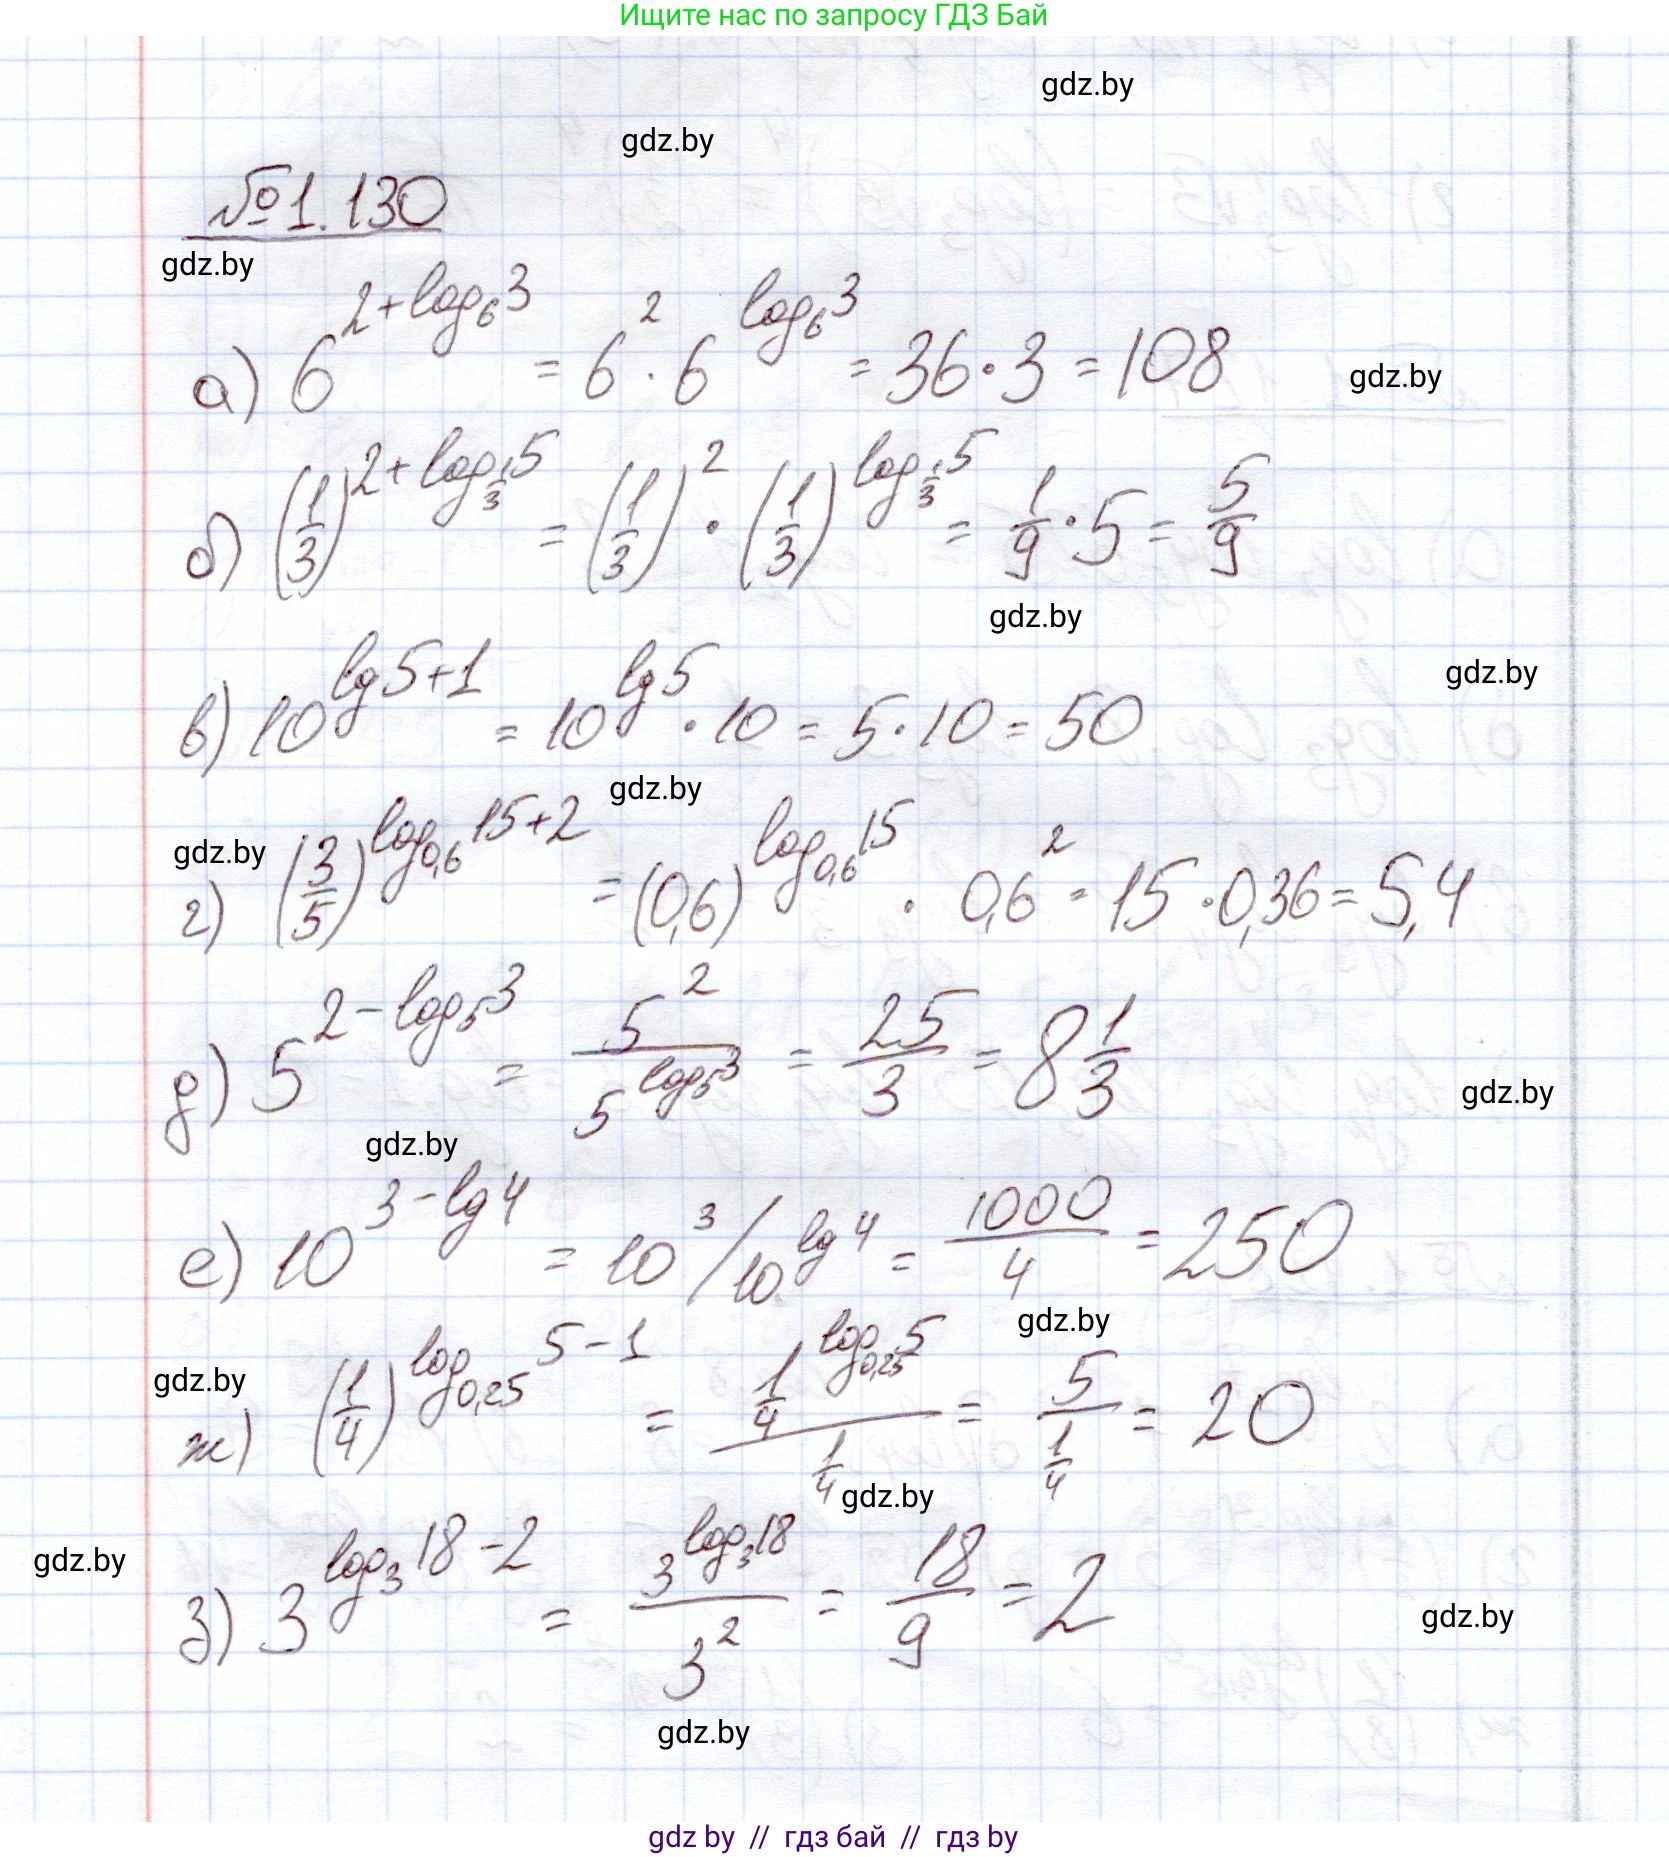 Ищите нас по запросу ГДЗ Бай
gdz.by
gdz.by
№1.130
gdz.by
а) 6^{2+log_6 3} = 6^2 · 6^{log_6 3} = 36 · 3 = 108
gdz.by
б) (1/3)^{2+log_{1/3} 5} = (1/3)^2 · (1/3)^{log_{1/3} 5} = 1/9 · 5 = 5/9
gdz.by
gdz.by
в) 10^{lg 5+1} = 10^{lg 5} · 10 = 5 · 10 = 50
gdz.by
gdz.by
г) (3/5)^{log_{0,6} 15+2} = (0,6)^{log_{0,6} 15} · 0,6^2 = 15 · 0,36 = 5,4
д) 5^{2-log_5 3} = 5^2 / 5^{log_5 3} = 25/3 = 8 1/3
gdz.by
gdz.by
е) 10^{3-lg 4} = 10^3 / 10^{lg 4} = 1000/4 = 250
gdz.by
gdz.by
ж) (1/4)^{log_{0,25} 5-1} = 1/4^{log_{0,25} 5} / 1/4 = 5 / 1/4 = 20
gdz.by
gdz.by
з) 3^{log_3 18-2} = 3^{log_3 18} / 3^2 = 18/9 = 2
gdz.by
gdz.by
gdz by // гдз бай // гдз by